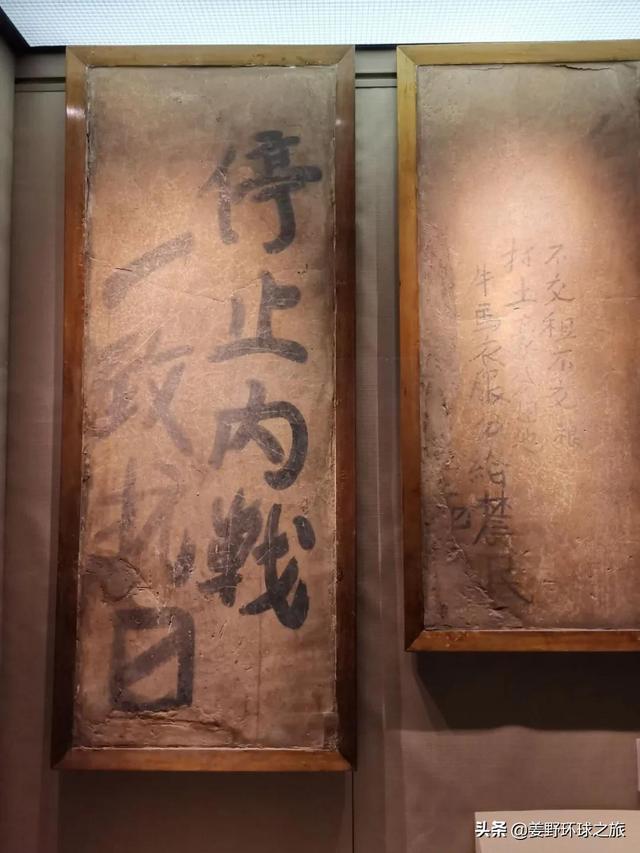 停止内戰
一致抗日
不交租不
打土豪分田地
牛馬衣服分給農民
头条 @姜野环球之旅